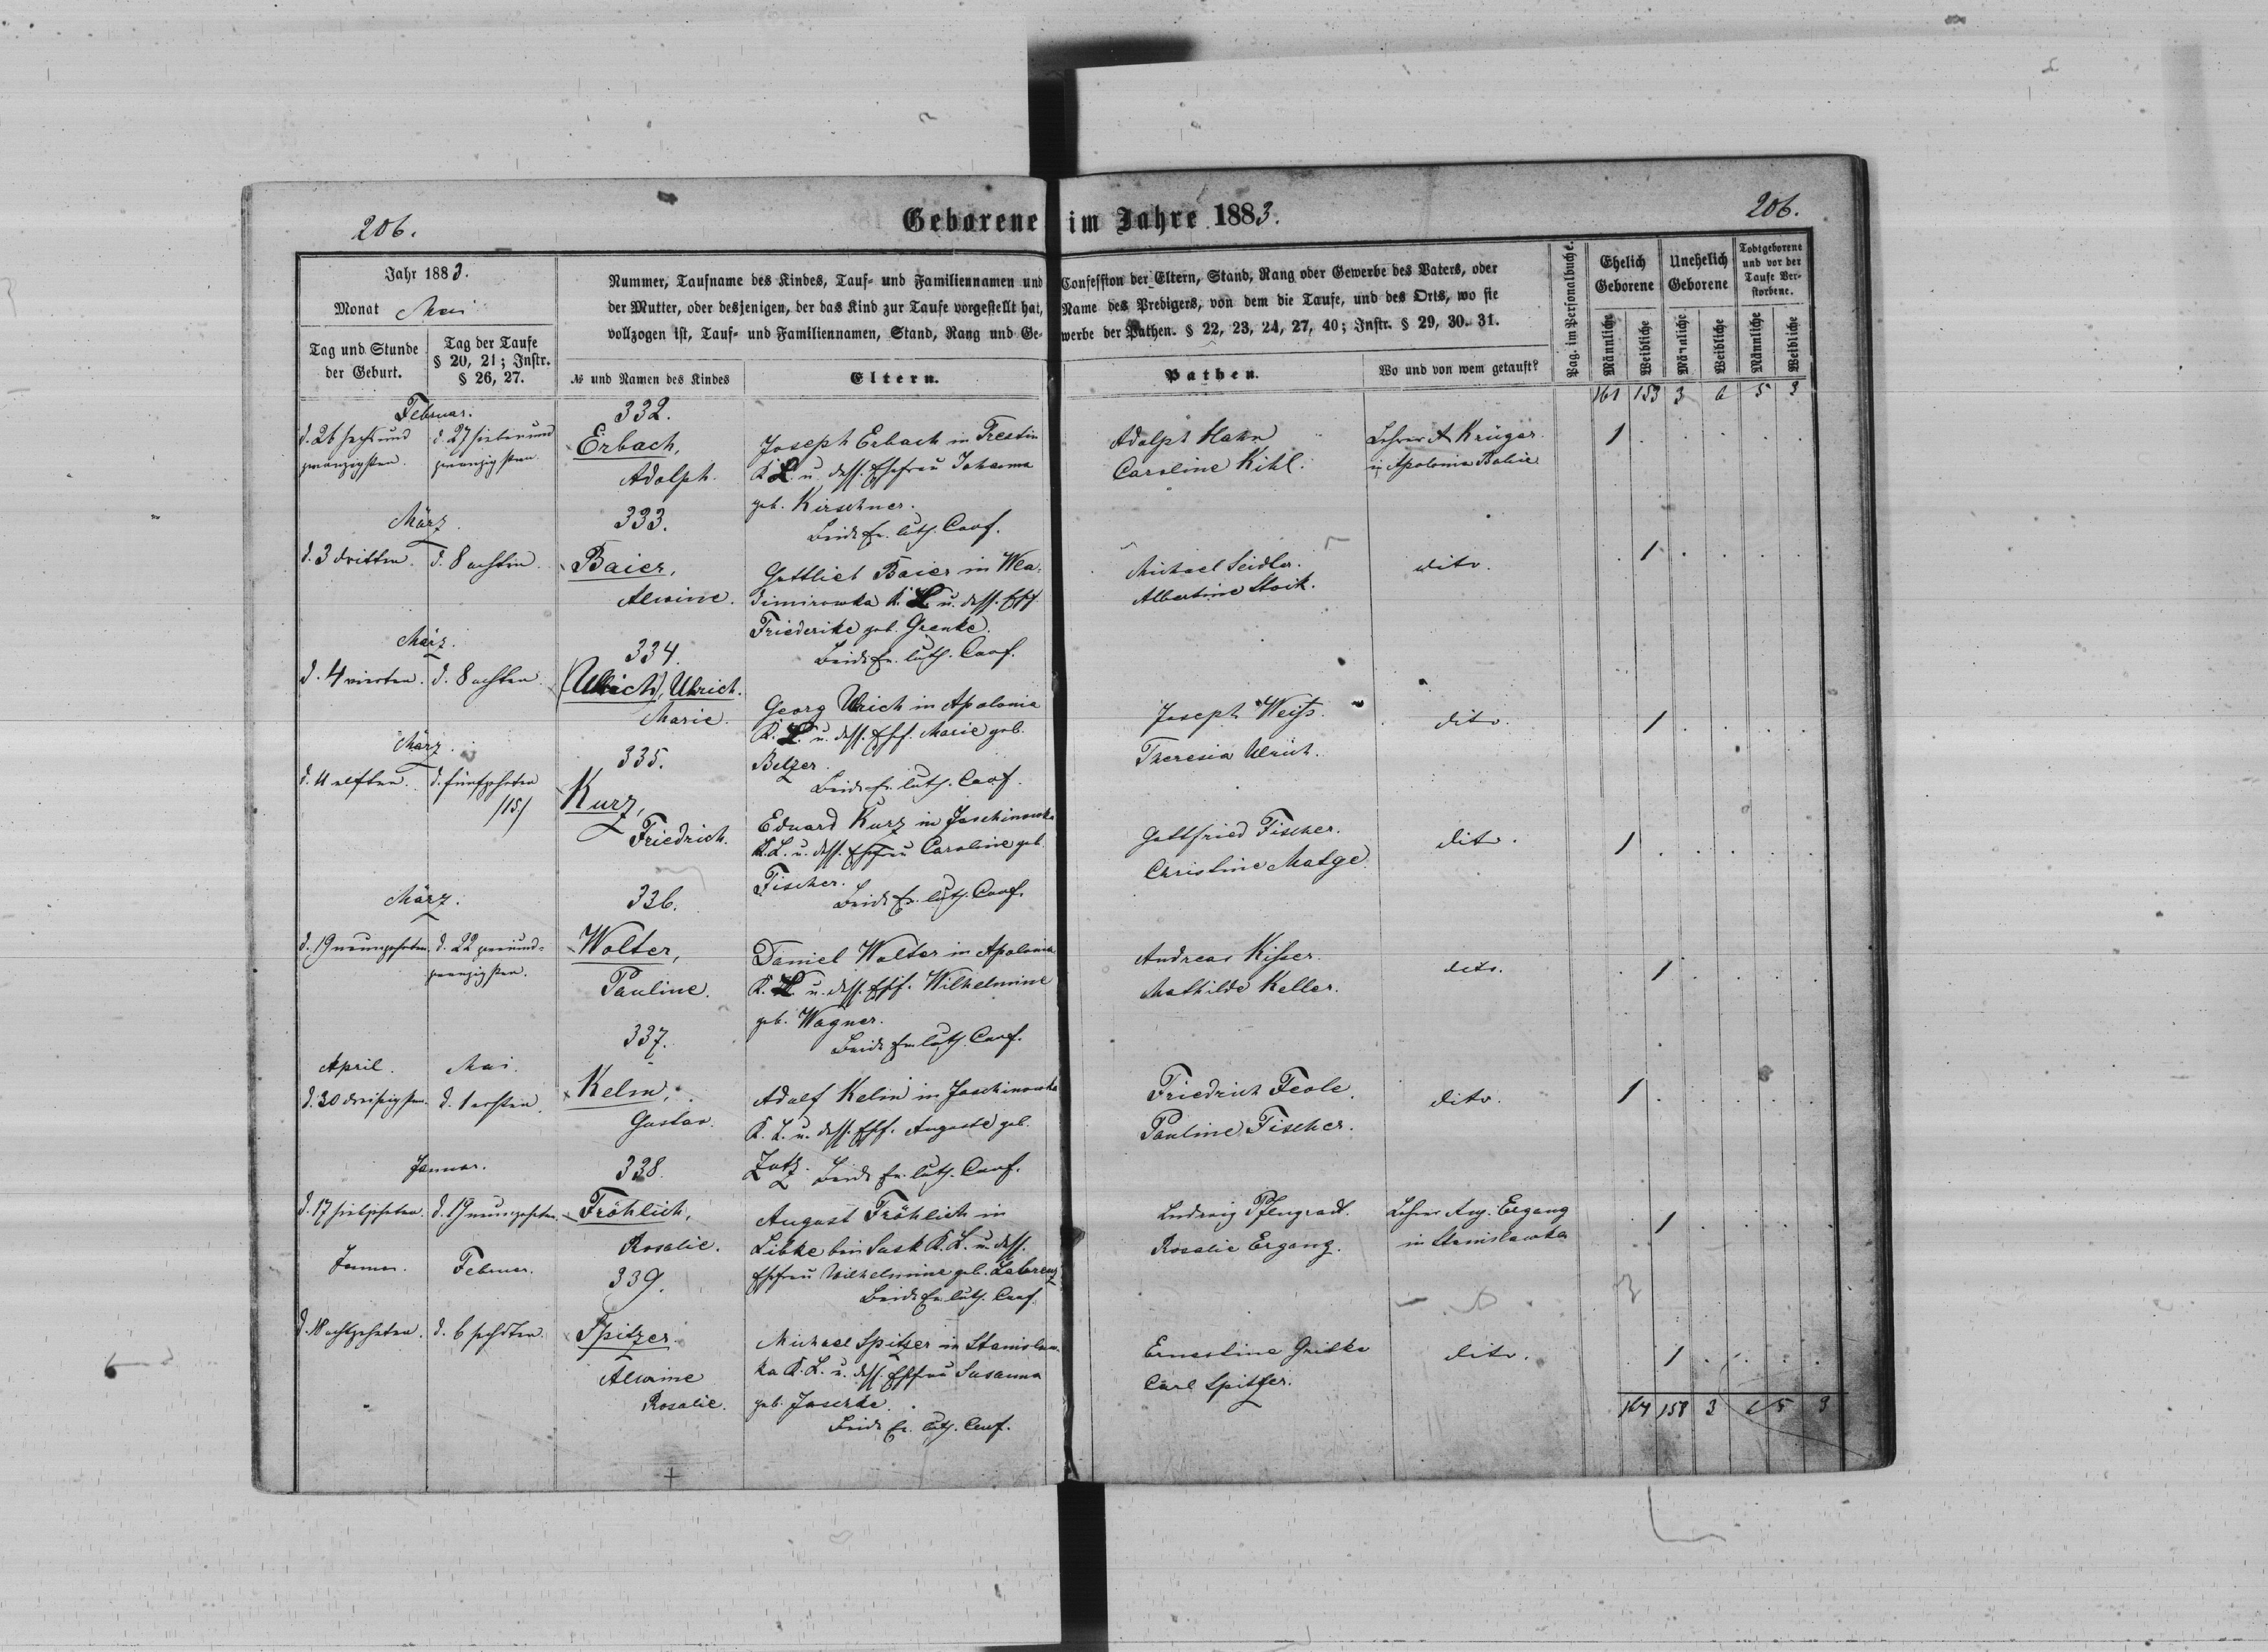 206.
Geborene im Jahre 1883.
206.
Jahr 1883.
Monat Mai
Tag und Stunde
der Geburt.
Tag der Taufe
§ 20, 21; Instr.
§ 26, 27.
Nummer, Taufname des Kindes, Tauf- und Familiennamen und
der Mutter, oder desjenigen, der das Kind zur Taufe vorgestellt hat,
vollzogen ist, Tauf- und Familiennamen, Stand, Rang und Ge-
№ und Namen des Kindes
Eltern.
Confession der Eltern, Stand, Rang oder Gewerbe des Vaters, oder
Name des Predigers, von dem die Taufe, und des Orts, wo sie
werbe der Pathen. § 22, 23, 24, 27, 40; Instr. § 29, 30. 31.
Pathen.
Wo und von wem getauft?
Pag. im Personalbuche.
Ehelich
Geborene
Unehelich
Geborene
Todtgeborene
und vor der
Taufe Ver-
storbene.
Männliche
Weibliche
Männliche
Weibliche
Männliche
Weibliche
161 153 3 6 5 3
Februar.
d. 26 sechsund
zwanzigsten.
d. 27 siebenund
zwanzigsten.
332.
Erbach,
Adolph.
Joseph Erbach in Trestin
K. L. u. dess. Ehefrau Johanna
geb. Kirschner.
Beide Ev. luth. Conf.
Adolph Hahn
Caroline Kihl.
Lehrer A Krüger.
in Apolonia
1
März.
d. 3 dritten.
d. 8 achten.
333.
Baier,
Alwine.
Gottlieb Baier in Wla-
dimirowka K. L. u. dess. Ehf.
Friederike geb. Grenke.
Beide Ev. luth. Conf.
Michael Seidler.
Albertine Stock.
dito.
1
März.
d. 4 vierten.
d. 8 achten.
334.
(Ullrich), Ulrich.
Marie.
Georg Ulrich in Apolonia
K. L. u. dess. Ehf. Marie geb.
Belzer.
Beide Ev. luth. Conf.
Joseph Weiss.
Theresia Ulrich.
dito.
1
März.
d. 11 elften.
d. fünfzehnten
/15/
335.
Kurz,
Friedrich.
Eduard Kurz in Jaschinowka
K. L. u. dess. Ehefrau Caroline geb.
Fischer.
Beide Ev. luth. Conf.
Gottfried Fischer.
Christine Matge.
dito.
1
März.
d. 19 neunzehnten.
d. 22 zweiund-
zwanzigsten.
336.
Wolter,
Pauline.
Daniel Wolter in Apolonia
K. L. u. dess. Ehf. Wilhelmine
geb. Wagner.
Beide Ev. luth. Conf.
Andreas Kisser.
Mathilde Keller.
dito.
1
April.
Mai.
d. 30 dreißigsten.
d. 1 ersten.
337.
Kelm,
Gustav.
Adolf Kelm in Jaschinowka
K. L. u. dess. Ehf. Auguste geb.
Zutz. Beide Ev. luth. Conf.
Friedrich
Pauline Fischer.
dito.
1
Januar.
d. 17 siebzehnten.
d. 19 neunzehnten.
338.
Fröhlich,
Rosalie.
August Fröhlich in
Libke bin Susk K. L. u. dess.
Ehefrau Wilhelmine geb. Laberenz
Beide Ev. luth. Conf.
Ludwig Pflugradt.
Rosalie Ergang.
Lehrer Aug. Ergang
in Stanislawka
1
Januar.
Februar.
d. 18 achtzehnten.
d. 6 sechsten.
339.
Spitzer.
Alwine
Rosalie.
Michael Spitzer in Stanislaw-
ka K. L. u. dess. Ehefrau Susanna
geb. Jaserke.
Beide Ev. luth. Conf.
Ernestine Grilke
Carl Spitzer.
dito.
1
164 158 3 6 5 3